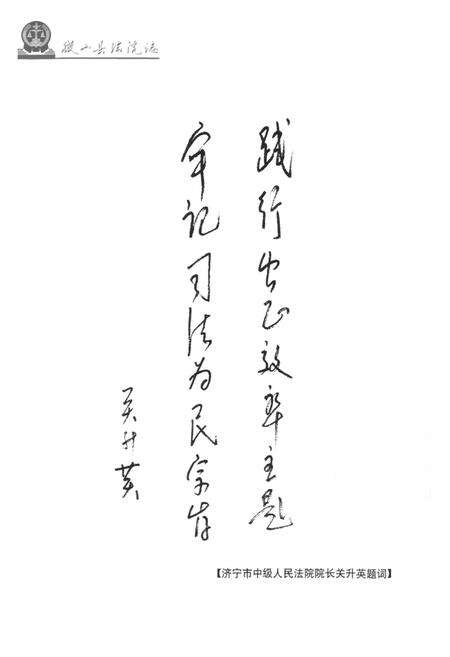 微山县法院志
践行公正效率主题
牢记司法为民宗旨
关升英
【济宁市中级人民法院院长关升英题词】